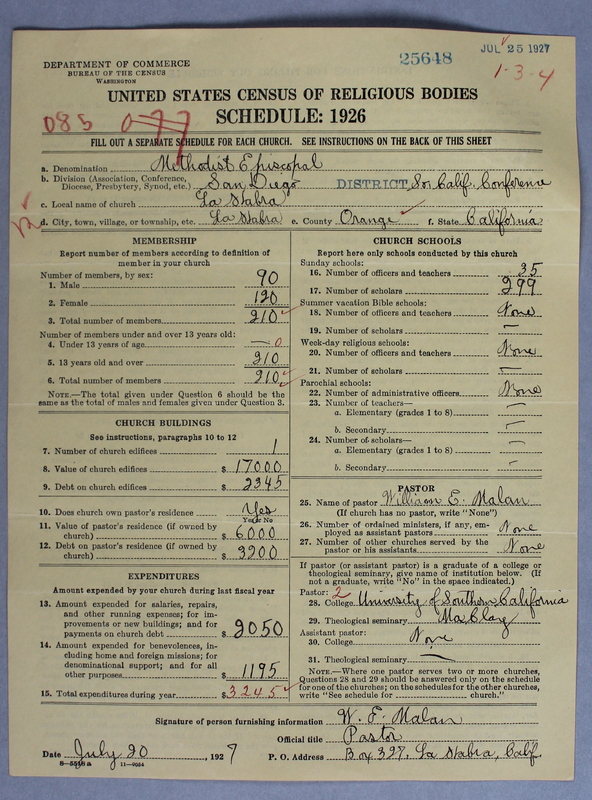 25648
JUL 25 1927
1-3-4
DEPARTMENT OF COMMERCE
BUREAU OF THE CENSUS
WASHINGTON
UNITED STATES CENSUS OF RELIGIOUS BODIES
SCHEDULE: 1926
085 077
FILL OUT A SEPARATE SCHEDULE FOR EACH CHURCH. SEE INSTRUCTIONS ON THE BACK OF THIS SHEET
a. Denomination Methodist Episcopal
b. Division (Association, Conference, Diocese, Presbytery, Synod, etc.) San Diego DISTRICT So. Calif. Conference
c. Local name of church La Habra
d. City, town, village, or township, etc. La Habra e. County Orange f. State California
MEMBERSHIP
Report number of members according to definition of
member in your church
Number of members, by sex:
1. Male 90
2. Female 120
3. Total number of members 210
Number of members under and over 13 years old:
4. Under 13 years of age — 0
5. 13 years old and over 210
6. Total number of members 210
NOTE.—The total given under Question 6 should be the
same as the total of males and females given under Question 3.
CHURCH BUILDINGS
See instructions, paragraphs 10 to 12
7. Number of church edifices 1
8. Value of church edifices $ 17000
9. Debt on church edifices $ 2345
10. Does church own pastor's residence? Yes
Yes or No
11. Value of pastor's residence (if owned by
church) $ 6000
12. Debt on pastor's residence (if owned by
church) $ 3200
EXPENDITURES
Amount expended by your church during last fiscal year
13. Amount expended for salaries, repairs,
and other running expenses; for im-
provements or new buildings; and for
payments on church debt $ 2050
14. Amount expended for benevolences, in-
cluding home and foreign missions; for
denominational support; and for all
other purposes $ 1195
15. Total expenditures during year $ 3245
CHURCH SCHOOLS
Report here only schools conducted by this church
Sunday schools:
16. Number of officers and teachers 35
17. Number of scholars 299
Summer vacation Bible schools:
18. Number of officers and teachers None
19. Number of scholars —
Week-day religious schools:
20. Number of officers and teachers None
21. Number of scholars —
Parochial schools:
22. Number of administrative officers None
23. Number of teachers—
a. Elementary (grades 1 to 8) —
b. Secondary —
24. Number of scholars—
a. Elementary (grades 1 to 8) —
b. Secondary —
PASTOR
25. Name of pastor William E. Malan
(If church has no pastor, write "None")
26. Number of ordained ministers, if any, em-
ployed as assistant pastors None
27. Number of other churches served by the
pastor or his assistants None
If pastor (or assistant pastor) is a graduate of a college or
theological seminary, give name of institution below. (If
not a graduate, write "No" in the space indicated.)
Pastor: 2
28. College University of Southern California
29. Theological seminary MaClay
Assistant pastor:
30. College None
31. Theological seminary —
NOTE.—Where one pastor serves two or more churches,
Questions 28 and 29 should be answered only on the schedule
for one of the churches; on the schedules for the other churches,
write "See schedule for church."
Signature of person furnishing information W. E. Malan
Official title Pastor
Date July 20, 1927 P. O. Address Box 327, La Habra, Calif.
8—5518a 11—9054